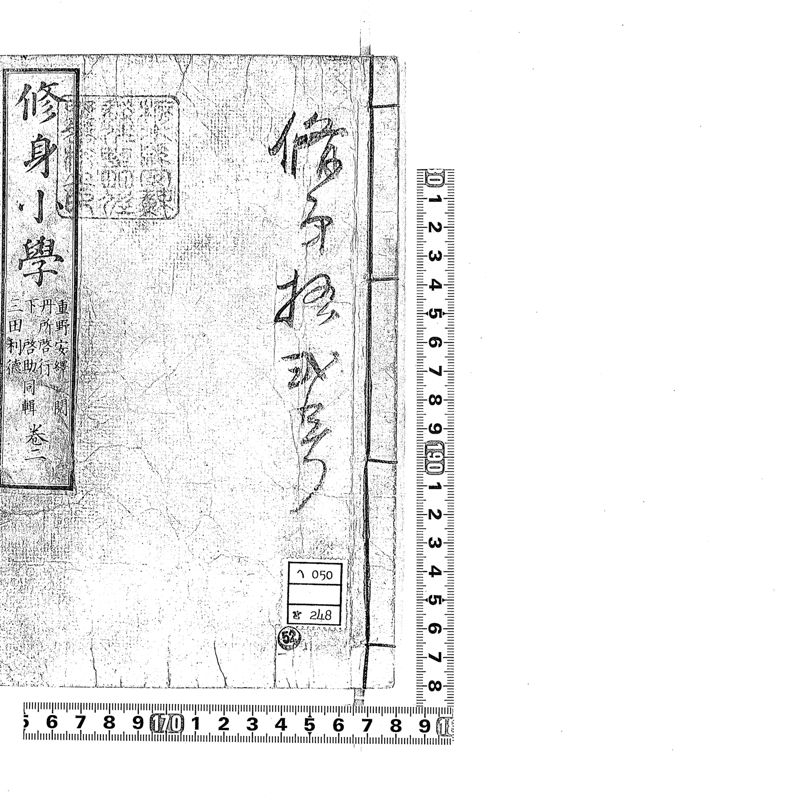 修身拾弐号
修身小學
重野安繹 閲
丹所啓行
下 啓助 同輯
三田利德
卷二
050
248
52
1 2 3 4 5 6 7 8 9 190 1 2 3 4 5 6 7 8
5 6 7 8 9 170 1 2 3 4 5 6 7 8 9